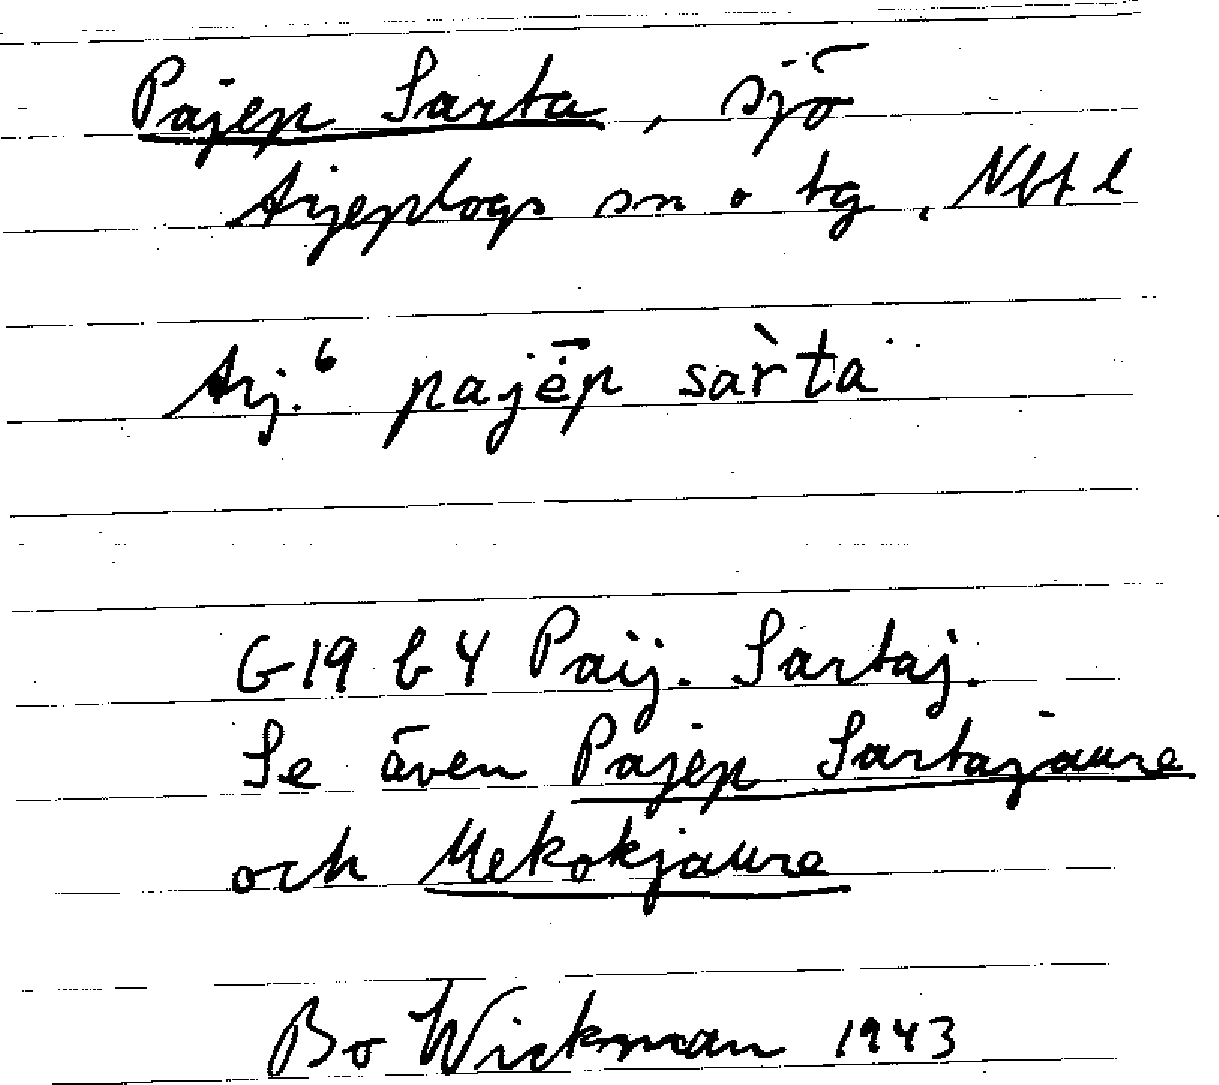 Pajep Sarta, sjö
Arjeplogs sn o tg, Nbt l
Arj.⁶ pajēp sàr̀ta
G19 b4 Paij. Sartaj.
Se även Pajep Sartajaure
och Mekokjaure
Bo Wickman 1943